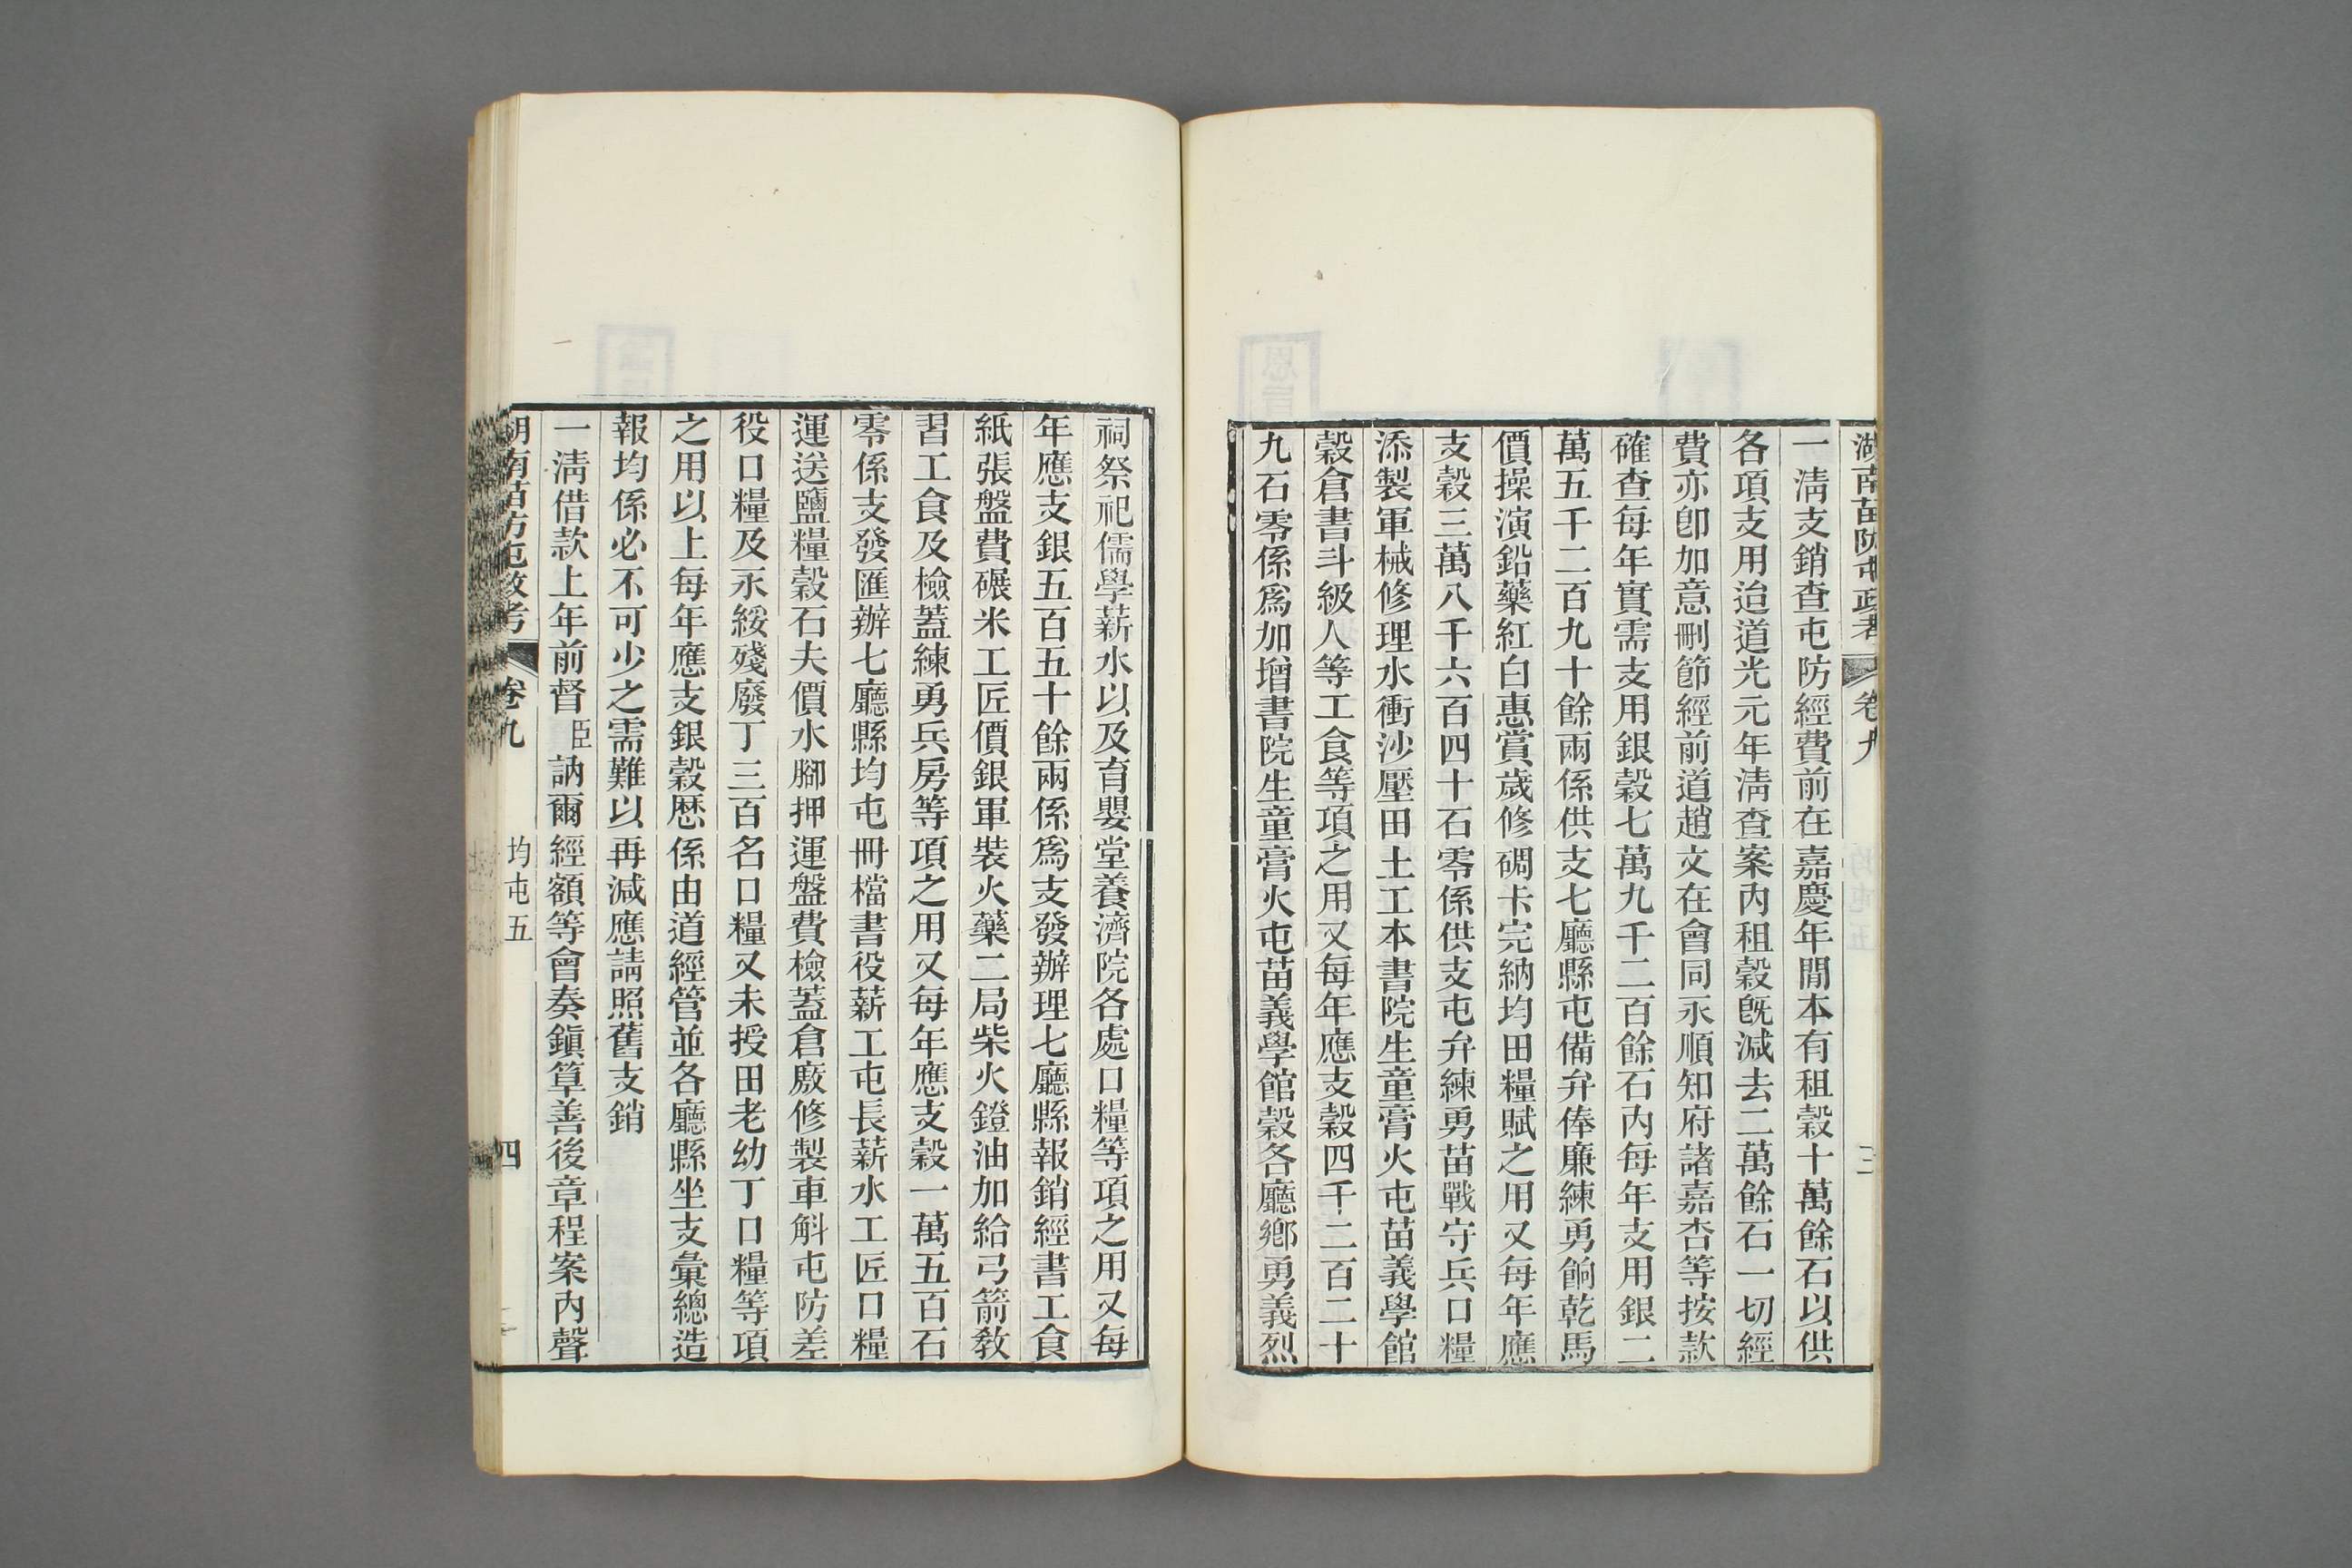 湖南苗防屯政考 卷九 三
一淸支銷查屯防經費前在嘉慶年閒本有租穀十萬餘石以供
各項支用迨道光元年淸查案內租穀旣減去二萬餘石一切經
費亦卽加意刪節經前道趙文在會同永順知府諸嘉杏等按款
確查每年實需支用銀穀七萬九千二百餘石內每年支用銀二
萬五千二百九十餘兩係供支七廳縣屯備弁俸廉練勇餉乾馬
價操演鉛藥紅白惠賞歲修碉卡完納均田糧賦之用又每年應
支穀三萬八千六百四十石零係供支屯弁練勇苗戰守兵口糧
添製軍械修理水衝沙壓田土工本書院生童膏火屯苗義學館
穀倉書斗級人等工食等項之用又每年應支穀四千二百二十
九石零係爲加增書院生童膏火屯苗義學館穀各廳鄉勇義烈
祠祭祀儒學薪水以及育嬰堂養濟院各處口糧等項之用又每
年應支銀五百五十餘兩係爲支發辦理七廳縣報銷經書工食
紙張盤費碾米工匠價銀軍裝火藥二局柴火鐙油加給弓箭敎
習工食及檢蓋練勇兵房等項之用又每年應支穀一萬五百石
零係支發匯辦七廳縣均屯冊檔書役薪工屯長薪水工匠口糧
運送鹽糧穀石夫價水腳押運盤費檢蓋倉廒修製車斛屯防差
役口糧及永綏殘廢丁三百名口糧又未授田老幼丁口糧等項
之用以上每年應支銀穀歷係由道經管並各廳縣坐支彙總造
報均係必不可少之需難以再減應請照舊支銷
一淸借款上年前督臣訥爾經額等會奏鎭筸善後章程案內聲
湖南苗防屯政考 卷九 均屯五 四